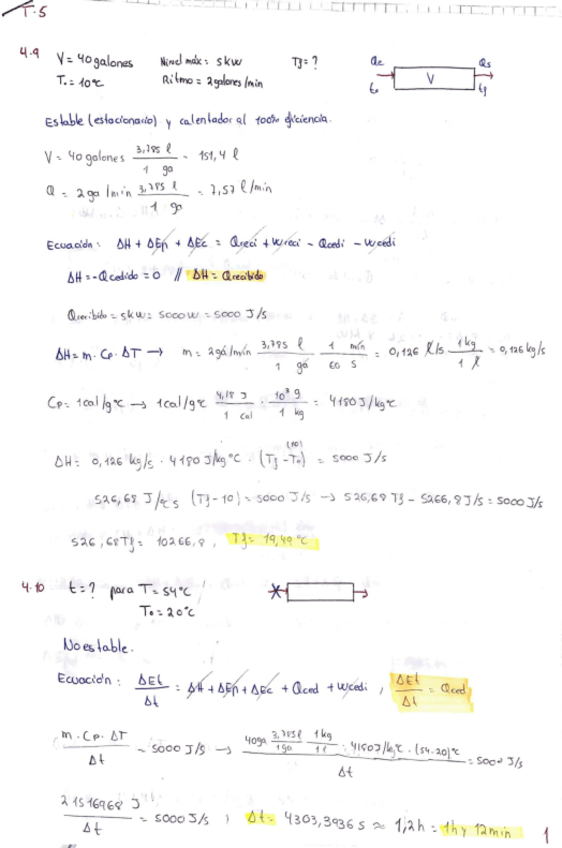 T.5
4.9 V = 40 galones Nivel máx = 5 kW Tf = ? Qe Qs
T₀ = 10°C Ritmo = 2 galones/min t₀ V tf
Estable (estacionario) y calentador al 100% eficiencia.
V = 40 galones 3,785 l / 1 ga = 151,4 l
Q = 2 ga/min 3,785 l / 1 ga = 7,57 l/min
Ecuación: ΔH + ΔEp + ΔEc = Qreci + Wreci - Qcedi - Wcedi
ΔH = -Qcedido = 0 // ΔH = Qrecibido
Qrecibido = 5kW = 5000 W = 5000 J/s
ΔH = m · Cp · ΔT → m = 2 gá/min 3,785 l / 1 gá · 1 min / 60 s = 0,126 l/s · 1 kg / 1 l = 0,126 kg/s
Cp = 1 cal/g°C → 1 cal/g°C 4,18 J / 1 cal · 10³ g / 1 kg = 4180 J/kg°C
(10)
ΔH = 0,126 kg/s · 4180 J/kg°C · (Tf - T₀) = 5000 J/s
526,68 J/°C s (Tf - 10) = 5000 J/s → 526,68 Tf - 5266,8 J/s = 5000 J/s
526,68 Tf = 10266,8, Tf = 19,49°C
4.10 t = ? para T = 54°C
T₀ = 20°C
No estable.
Ecuación: ΔEt / Δt = ΔH + ΔEp + ΔEc + Qced + Wcedi, ΔEt / Δt = Qced
m · Cp · ΔT / Δt = 5000 J/s → 40ga 3,785l / 1ga · 1kg / 1l · 4180 J/kg°C · (54-20)°C / Δt = 5000 J/s
21516968 J / Δt = 5000 J/s ; Δt = 4303,3936 s ≈ 1,2h = 1h y 12min
1